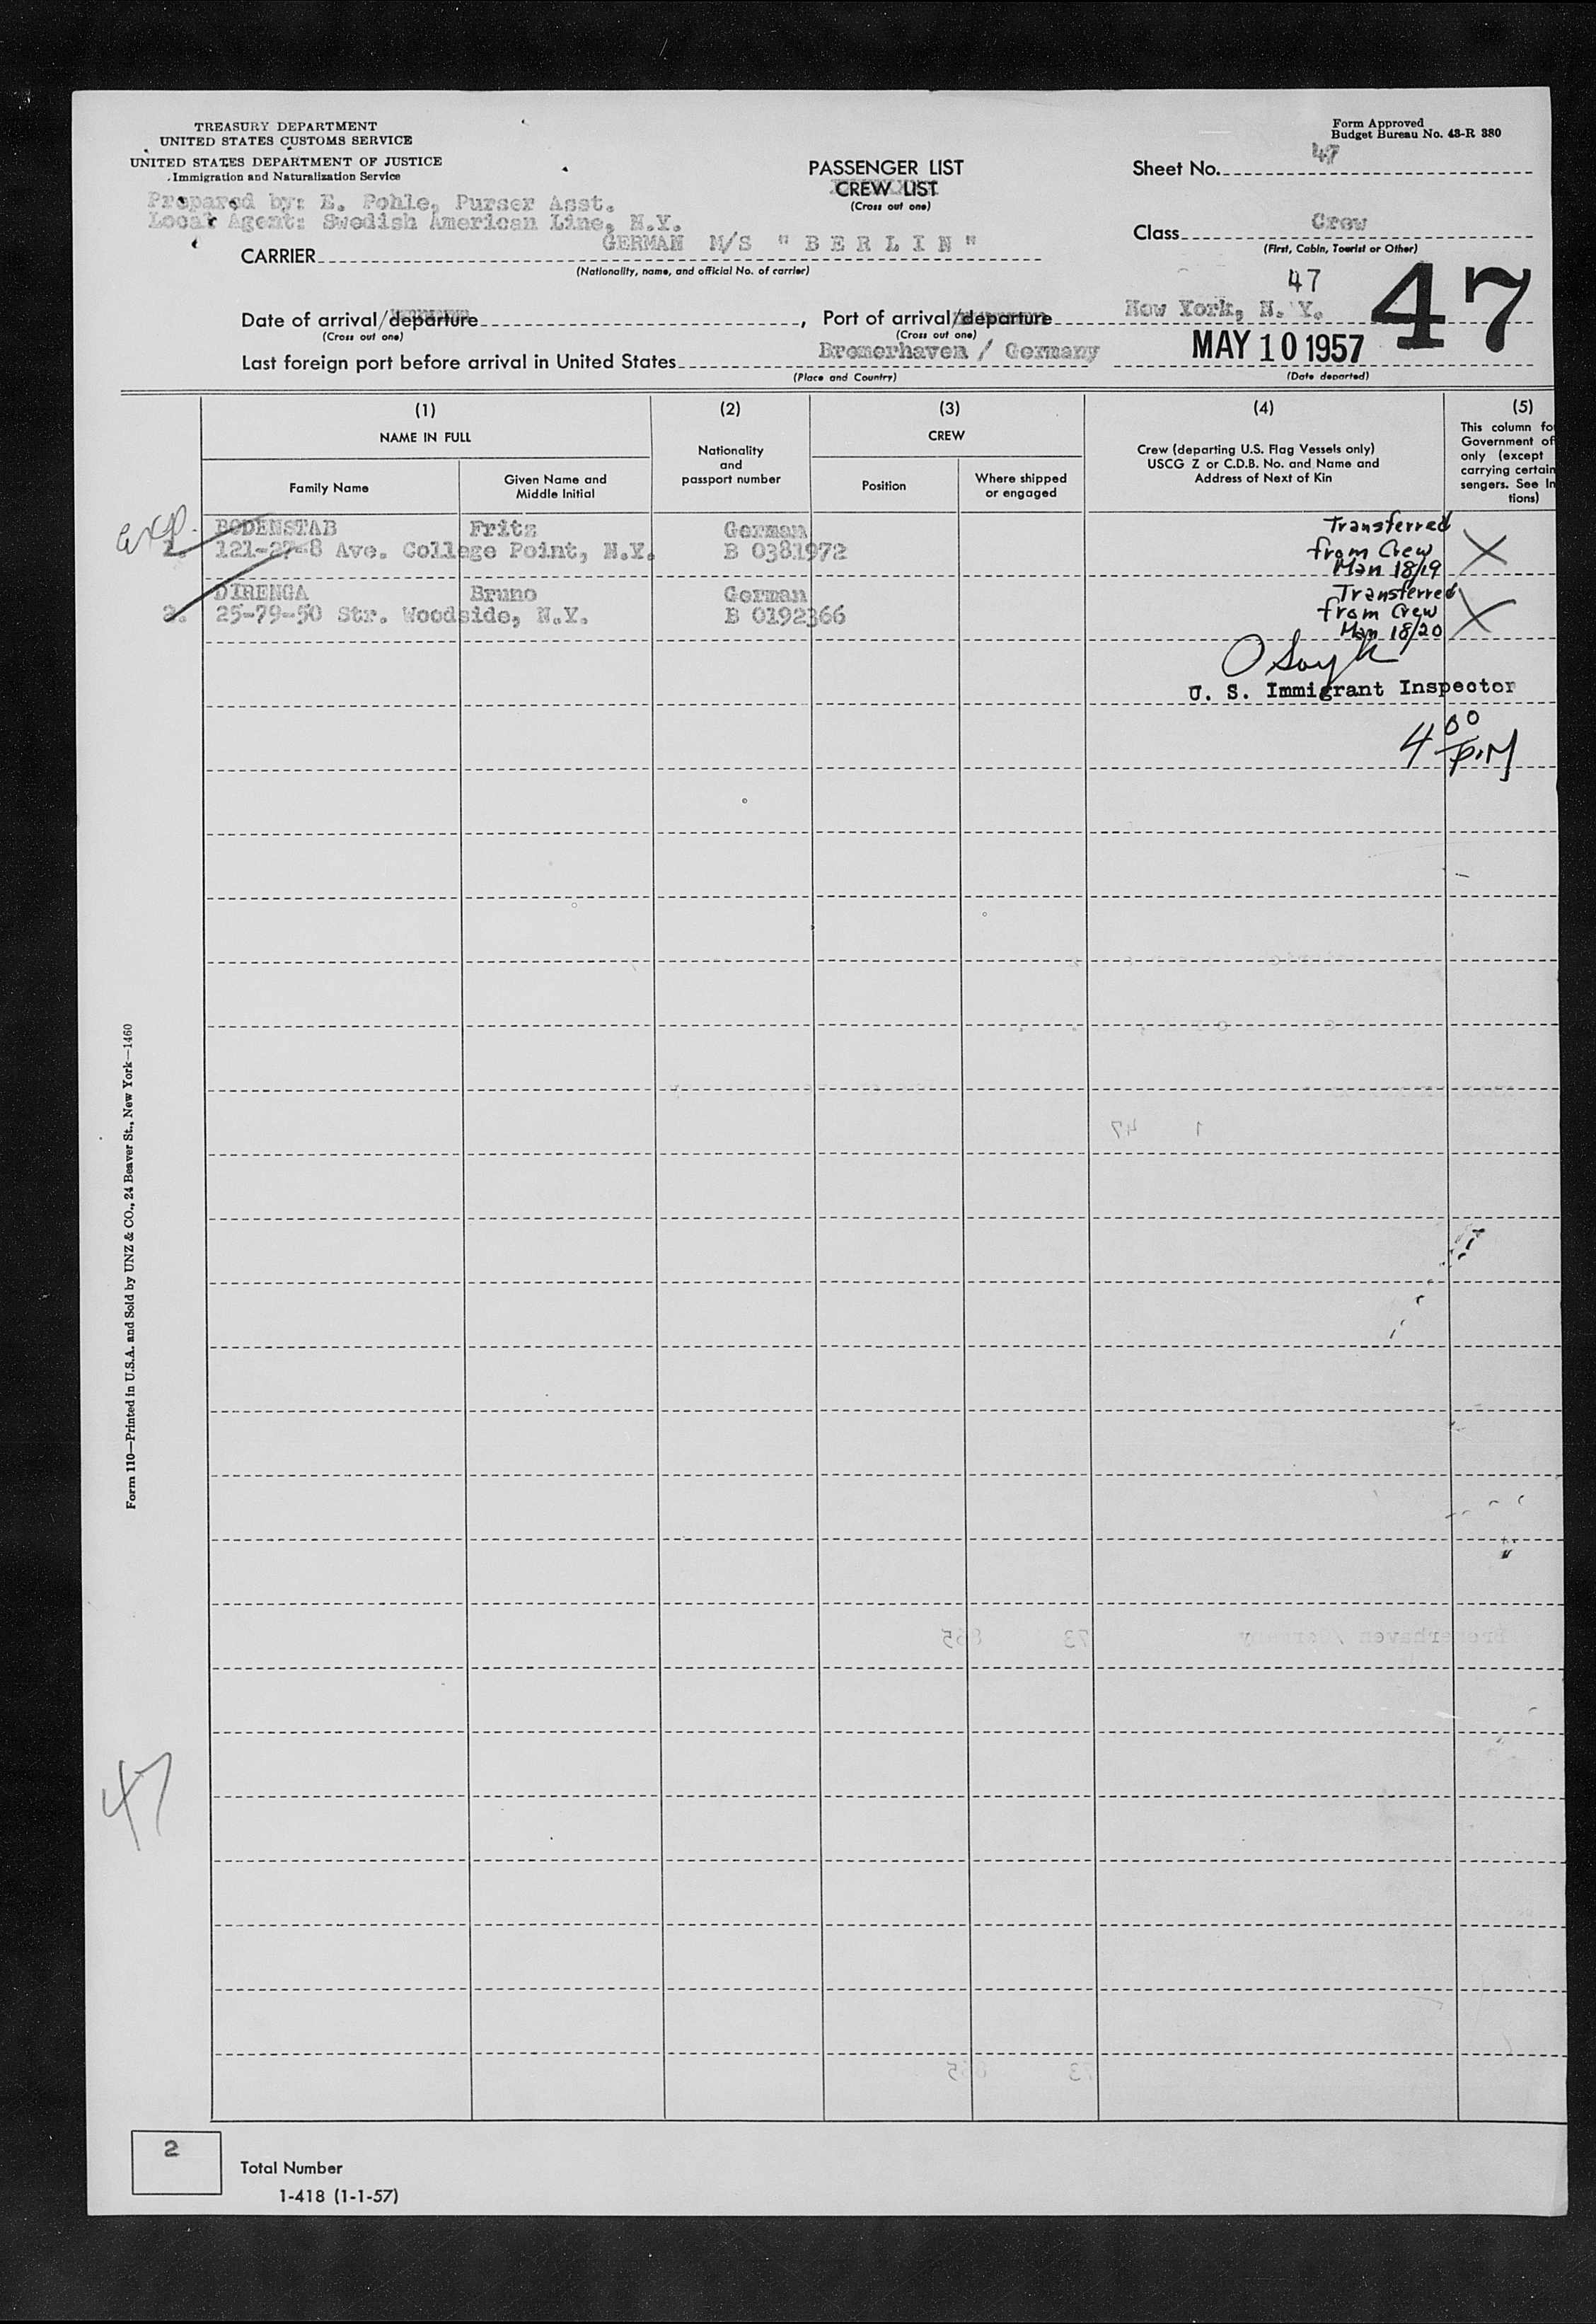 TREASURY DEPARTMENT
UNITED STATES CUSTOMS SERVICE
UNITED STATES DEPARTMENT OF JUSTICE
Immigration and Naturalization Service
Prepared by: E. Pohle, Purser Asst.
Local Agent: Swedish American Line, N.Y.
PASSENGER LIST
CREW LIST
(Cross out one)
Form Approved
Budget Bureau No. 43-R 380
Sheet No. 47
Class Crew
(First, Cabin, Tourist or Other)
CARRIER GERMAN M/S " B E R L I N "
(Nationality, name, and official No. of carrier)
47
47
Date of arrival/departure , Port of arrival/departure New York, N. Y.
(Cross out one) (Cross out one)
Last foreign port before arrival in United States Bremerhaven / Germany MAY 10 1957
(Place and Country) (Date departed)
(1) (2) (3) (4) (5)
NAME IN FULL
Family Name
Given Name and
Middle Initial
Nationality
and
passport number
CREW
Position
Where shipped
or engaged
Crew (departing U.S. Flag Vessels only)
USCG Z or C.D.B. No. and Name and
Address of Next of Kin
This column fo
Government of
only (except
carrying certain
sengers. See In
tions)
exp.
BODENSTAB Fritz German Transferred
1. 121-27-8 Ave. College Point, N.Y. B 0381972 from Crew
Man 18/19
DIRENGA Bruno German Transferred
2. 25-79-50 Str. Woodside, N.Y. B 0192366 from Crew
Man 18/20
U. S. Immigrant Inspector
4 00 P.M
Form 110—Printed in U.S.A. and Sold by UNZ & CO., 24 Beaver St., New York—1460
47
2
Total Number
1-418 (1-1-57)